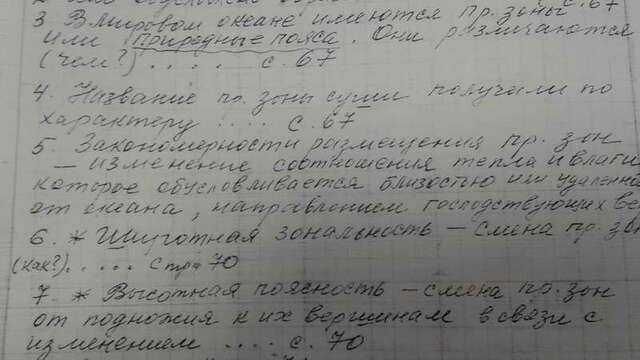 3. В мировом океане имеются пр. зоны с. 67
или природные пояса. Они различаются
(чем?) . . . . . с. 67
4. Название пр. зоны суши получили по
характеру . . . . с. 67
5. Закономерности размещения пр. зон
– изменение соотношения тепла и влаги
которое обусловливается близостью или удаленно
от океана, направлением господствующих ве
6. * Широтная зональность – смена пр. зон
(как?) . . . . . стр 70
7. * Высотная поясность – смена пр. зон
от подножия к их вершинам в связи с
изменением . . . . с. 70